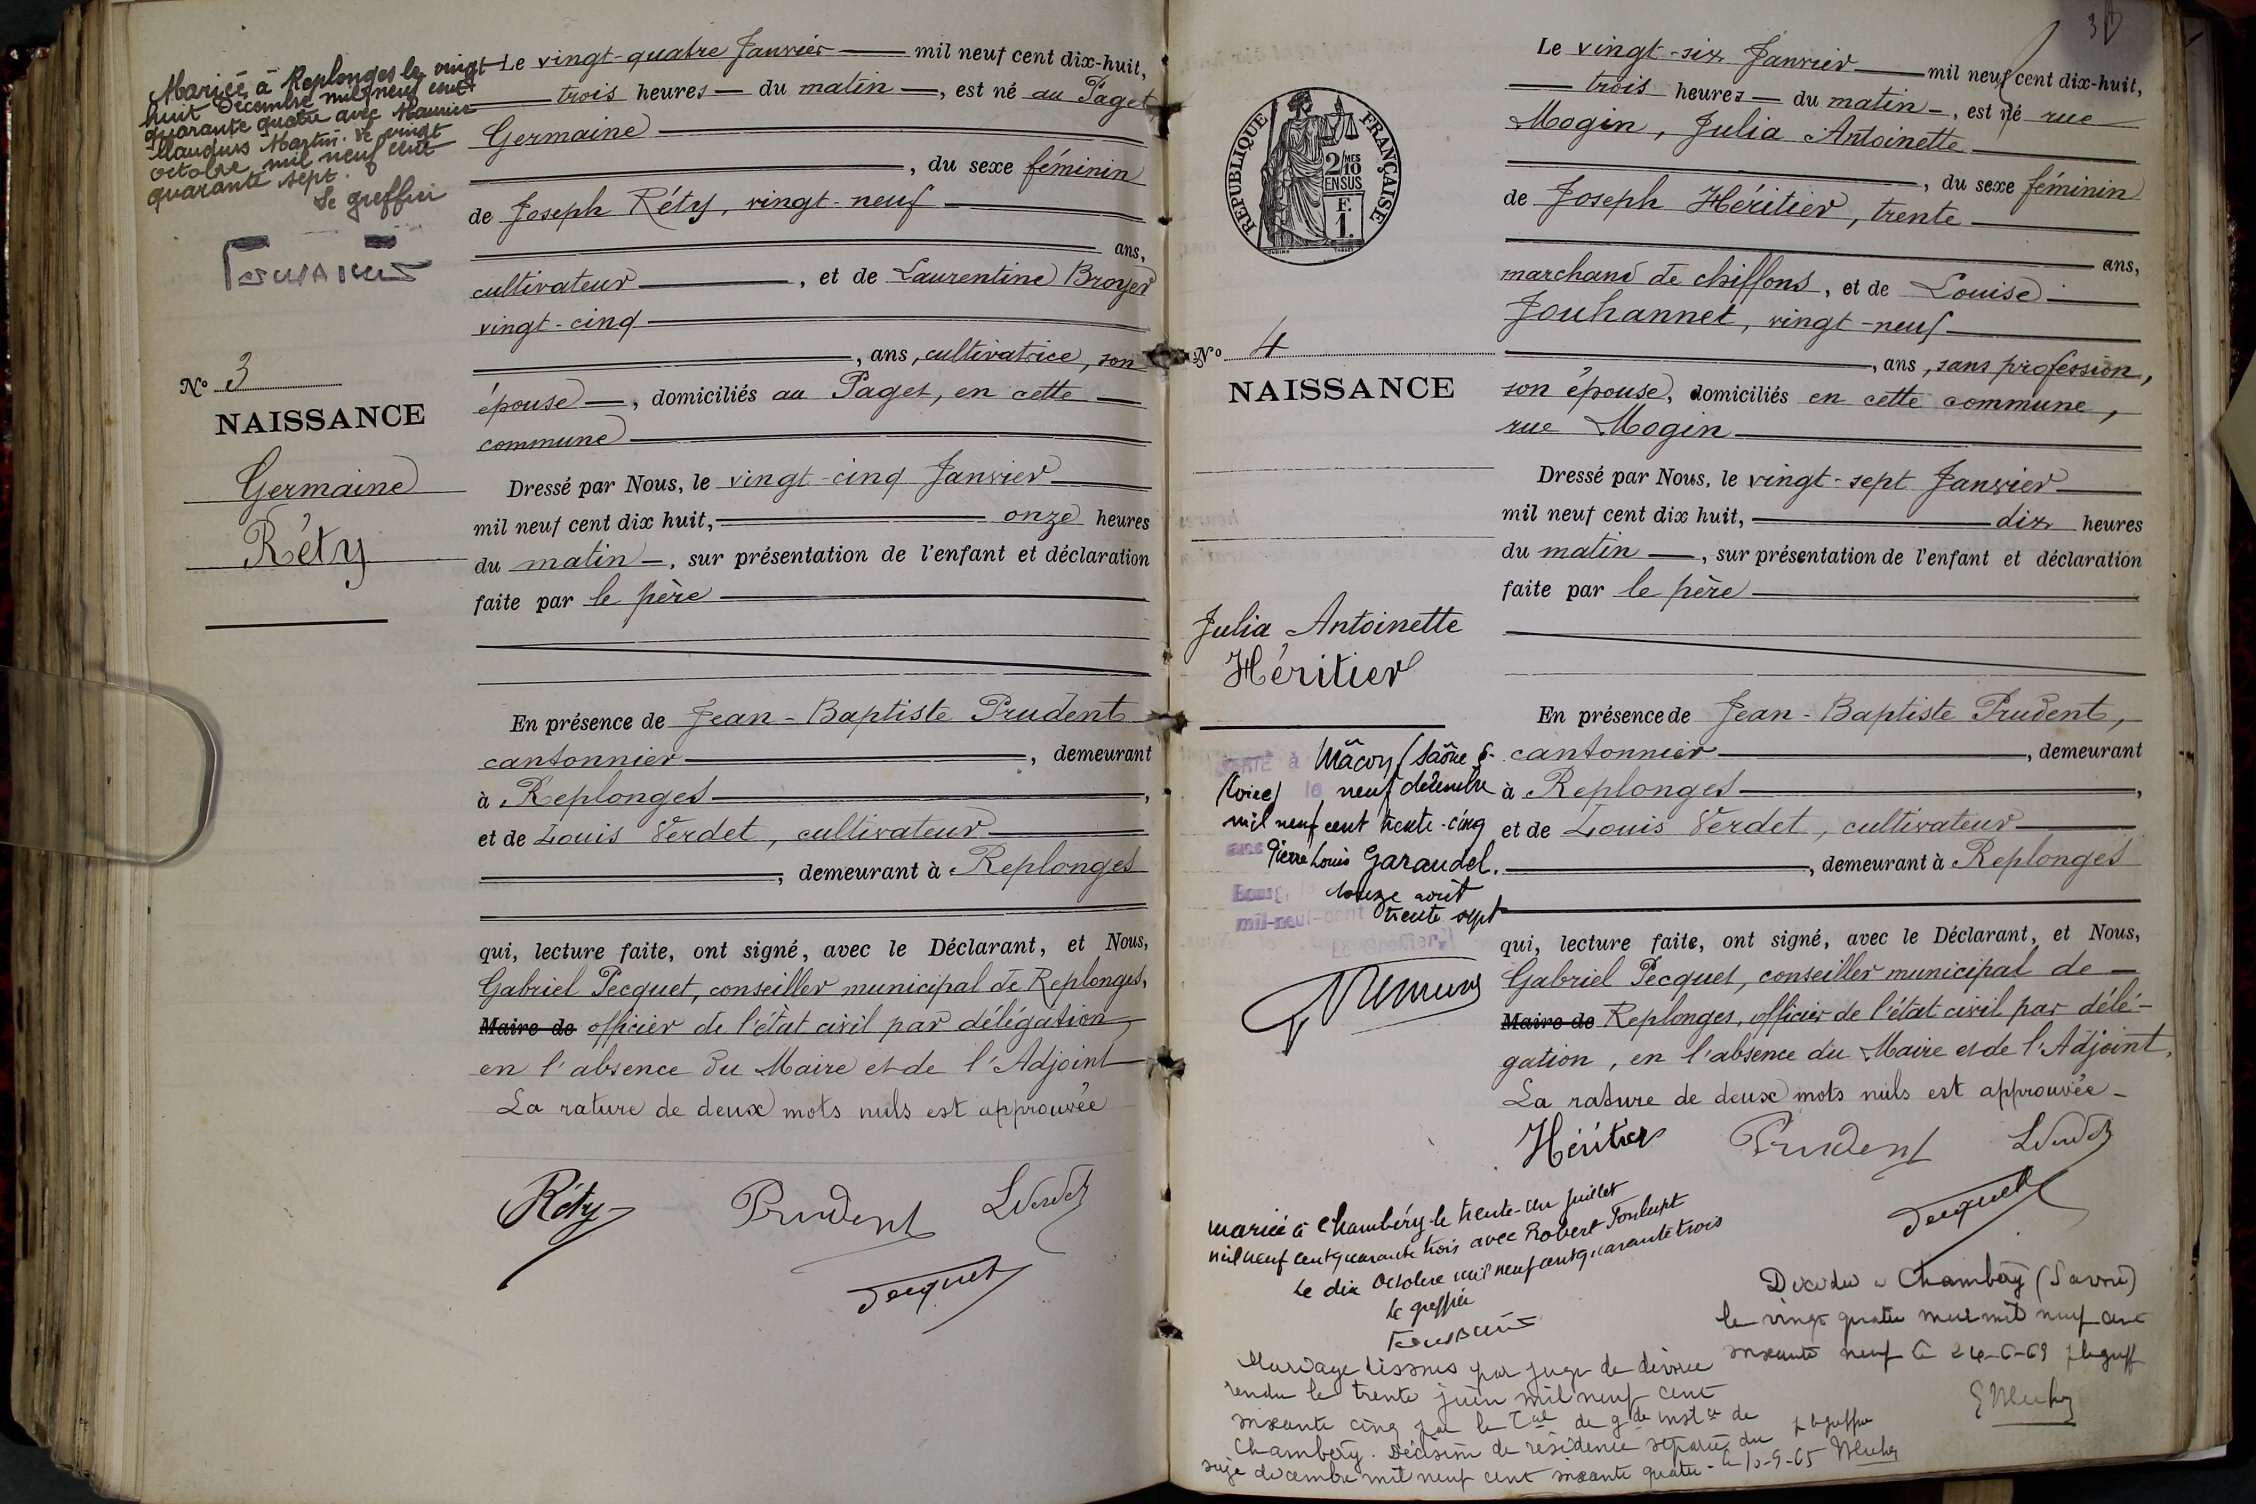 Mariée à Replonges le vingt
huit Décembre mil neuf cent
quarante quatre avec Maurice
Martin. Le vingt
octobre mil neuf cent
quarante sept.
Le greffier
Nº 3
NAISSANCE
Germaine
Réty
Le vingt-quatre Janvier mil neuf cent dix-huit,
trois heures du matin, est né au Paget
Germaine
, du sexe féminin
de Joseph Réty, vingt-neuf
ans,
cultivateur, et de Laurentine Broyer
vingt-cinq
, ans, cultivatrice, son
épouse, domiciliés au Paget, en cette
commune
Dressé par Nous, le vingt-cinq Janvier
mil neuf cent dix huit, onze heures
du matin, sur présentation de l'enfant et déclaration
faite par le père
En présence de Jean-Baptiste Prudent
cantonnier, demeurant
à Replonges,
et de Louis Verdet, cultivateur
, demeurant à Replonges
qui, lecture faite, ont signé, avec le Déclarant, et Nous,
Gabriel Pecquet, conseiller municipal de Replonges,
Maire de officier de l'état civil par délégation,
en l'absence du Maire et de l'Adjoint
La rature de deux mots nuls est approuvée
Réty Prudent LVerdet
Pecquet
3
REPUBLIQUE FRANÇAISE
2/10 MES
EN SUS
F.
1.
Nº 4
NAISSANCE
Julia Antoinette
Héritier
Marié à Mâcon (Saône &
Loire) le neuf décembre
mil neuf cent trente-cinq
avec Pierre Louis Garaudel.
Bourg, le douze août
mil-neuf-cent trente sept
Le Greffier,
Le vingt-six Janvier mil neuf cent dix-huit,
trois heures du matin, est né rue
Mogin, Julia Antoinette
, du sexe féminin
de Joseph Héritier, trente
ans,
marchand de chiffons, et de Louise
Jouhannet, vingt-neuf
, ans, sans profession,
son épouse, domiciliés en cette commune,
rue Mogin
Dressé par Nous, le vingt-sept Janvier
mil neuf cent dix huit, dix heures
du matin, sur présentation de l'enfant et déclaration
faite par le père
En présence de Jean-Baptiste Prudent,
cantonnier, demeurant
à Replonges,
et de Louis Verdet, cultivateur
, demeurant à Replonges
qui, lecture faite, ont signé, avec le Déclarant, et Nous,
Gabriel Pecquet, conseiller municipal de
Maire de Replonges, officier de l'état civil par délé-
gation, en l'absence du Maire et de l'Adjoint,
La rature de deux mots nuls est approuvée
Héritier Prudent LVerdet
Pecquet
Mariée à Chambéry le trente-un juillet
mil neuf cent quarante trois avec Robert
Le dix Octobre mil neuf cent quarante trois
Le greffier
Mariage dissous par jugt de divorce
rendu le trente juin mil neuf cent
soixante cinq par le Tal de gde instce de
Chambéry. Décision de résidence séparée du
seize décembre mil neuf cent soixante quatre - le 10-9-65
Décédée à Chambéry (Savoie)
le vingt quatre mai mil neuf cent
soixante neuf le 24-6-69 p le greff